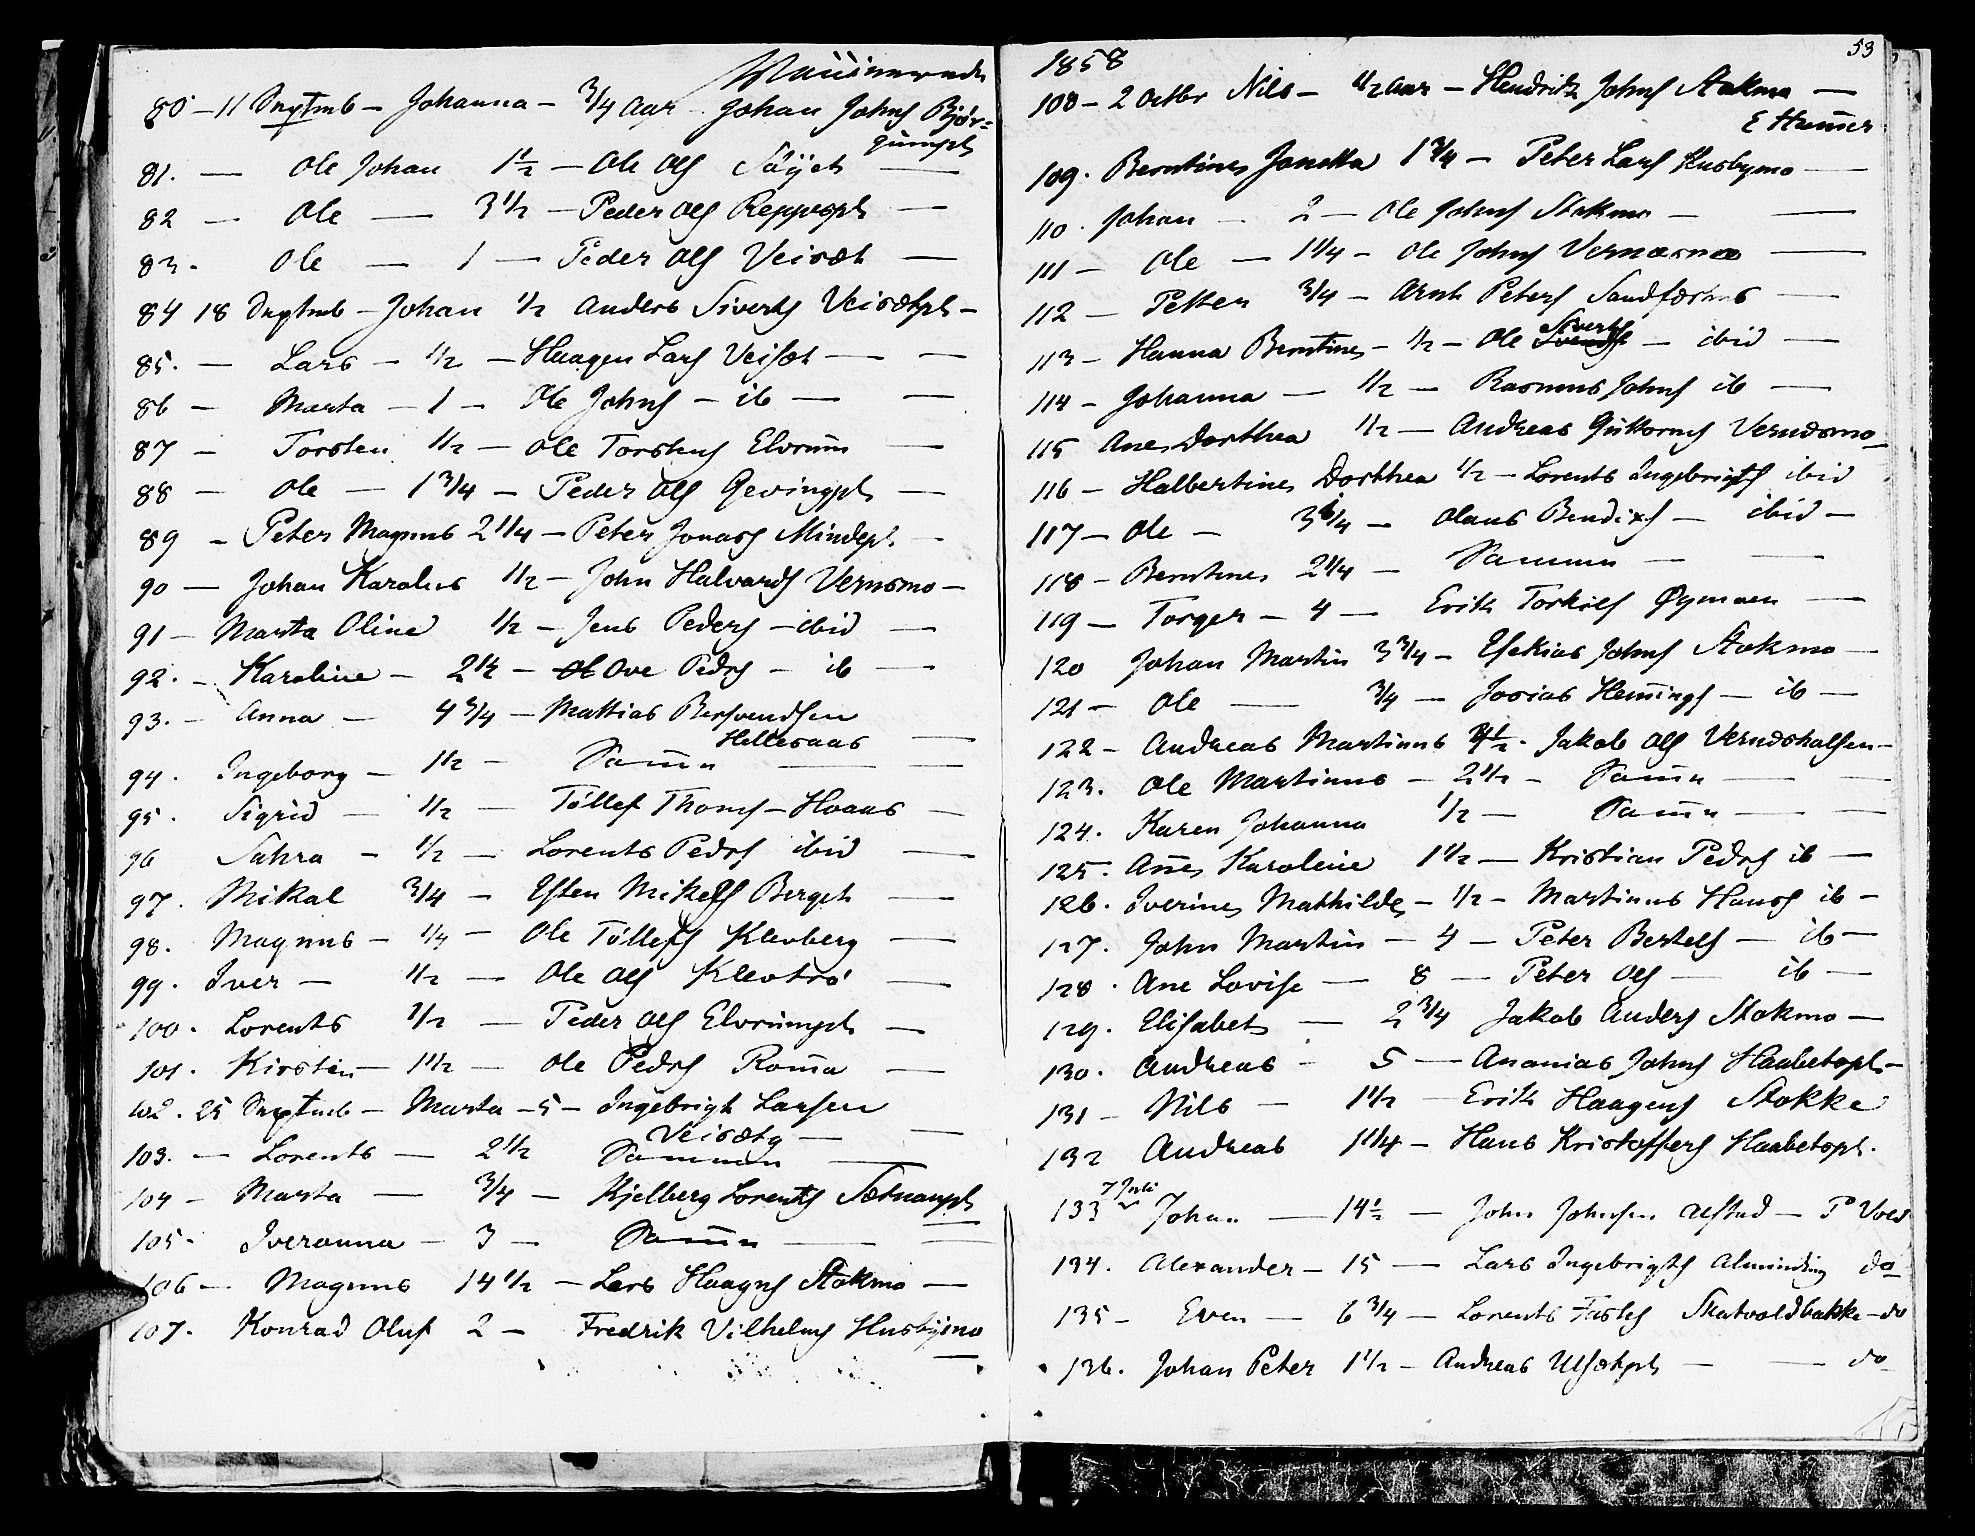 Vaccinerede
80 - 11 Septmb - Johanna - 3/4 Aar - Johan Johns Bjør=
gumpl
81. — Ole Johan 1 1/2 — Ole Ols Søyet —
82 — Ole — 3 1/2 — Peder Ols Reppespl —
83. Ole — 1 — Peder Ols Veisæt —
84 18 Septmb - Johan 1/2 Anders Siverts Veisætpl -
85. — Lars - 1/2 — Haagen Lars Veisæt — —
86 — Marta - 1 - Ole Johns - ib — —
87 - Torsten 1/2 — Ole Torstens Elvrum —
88 — Ole — 1 3/4 — Peder Ols Gevingpl —
89 - Peter Magnus 2 1/4 — Peter Jonass Mindepl —
90 — Johan Karolus 1/2 — John Halvards Vernsmo —
91 — Marta Oline 1/2 — Jens Peders - ibid —
92. - Karoline - 2 1/2 - Ove Pedrs - ib —
93. - Anna - 4 3/4 — Mattias Bersvendsen
Hellesaas —
94. Ingeborg - 1 1/2 - Samm — —
95. Sigrid — 1/2 — Tøllef Thoms - Hoaas —
96 Sahra - 1/2 — Lorents Pedrs ibid —
97. Mikal 3/4 — Esten Mikels Berget —
98. Magnus - 1/4 — Ole Tøllefs Klevberg —
99. Iver - 1/2 — Ole Ols Klevtrø —
100. Lorents 1/2 — Peder Ols Elvrumpl —
101. Kirsten - 1 1/2 — Ole Pedrs Roma —
102. 25 Septmb - Marta - 5 - Ingebrigt Larsen
Veisætg — —
103. — Lorents — 2 1/2 Sammen —
104 - Marta — 3/4 — Kjelberg Lorents Sætnanpl
105. Iveranna - 3 - Samm — —
106 — Magnus 14 1/2 — Lars Haagns Stokmo —
107. Konrad Oluf 2 — Fredrik Vilhelms Husbymo
—
53
1858
108 - 2 Octbr Nils - 1/2 Aar - Hendrik Johns Stokmo —
E Hammer
109. Berntine Jonetta 1 3/4 — Peter Lars Husbymo —
110. Johan - 2 — Ole Johns Stokmo - —
111 — Ole — 1 1/4 - Ole Johns Vernæsmo —
112 — Petter 3/4 — Arnt Peters Sandfærhus —
113 - Hanna Berntine - 1/2 - Ole Siverts — ibid —
114 - Johanna — 1/2 — Rasmus Johns ib —
115 Ane Dorthea 1/2 — Andreas Guttorms Vernæsmo —
116 - Halbertine Dorthea 1/2 - Lorents Ingebrigts ibid
117 - Ole - 3 1/4 - Olaus Bendixs — ibid —
118 - Berntine 2 1/4 — Sammen — —
119 — Torger - 4 — Erik Torkils Øymoen —
120 Johan Martin 3 3/4 - Esekias Johns Stokmo —
121 — Ole — 3/4 — Josias Hemings — ib —
122 - Andreas Martinus 4 1/2 - Jakob Ols Vernæshalsen -
123. Ole Martinus - 2 1/2 - Samm — —
124. Karen Johanna 1/2 — Samm — —
125. Ane Karoline 1 1/2 — Kristian Pedrs ib —
126. Iverine Mathilde - 1/2 - Martinus Hans ib -
127. John Martin - 4 - Peter Bertels — ib —
128. Ane Lovise — 8 — Peter Ols — ib —
129. Elisabet — 2 3/4 Jakob Anders Stokmo —
130. Andreas - 5 — Ananias Johns Haabetspl -
131 - Nils - 1 1/2 - Erik Haagens Stokke
132 Andreas 1 1/4 - Hans Kristoffers Haabetspl.
7 Juli
133 Johan — 14 1/2 — John Johnsen Alstad — P Vold
134. Alexander - 15 — Lars Ingebrigts Alminding do
135 - Even — 6 3/4 — Lorents Skatvoldbakke - do
136. Johan Peter 1 1/2 - Andreas Ulsætpl — — do